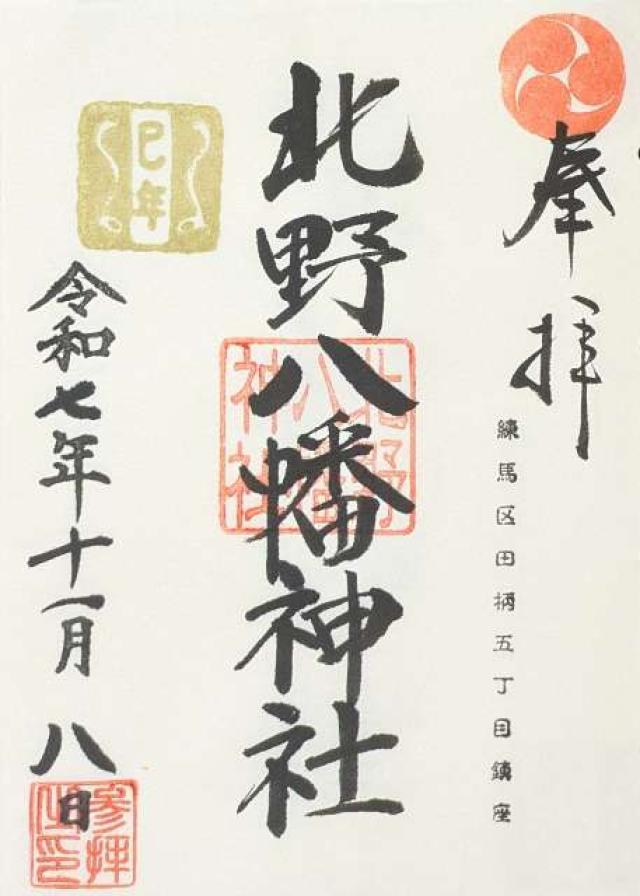 奉拝
練馬区田柄五丁目鎮座
北野八幡神社
北野八幡神社
巳年
令和七年十一月八日
参拝之印